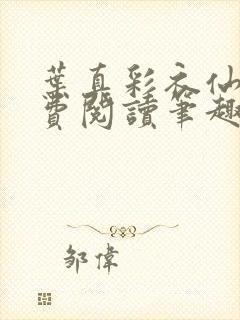 葉真彩衣仙
費閱讀筆趣
鄒偉